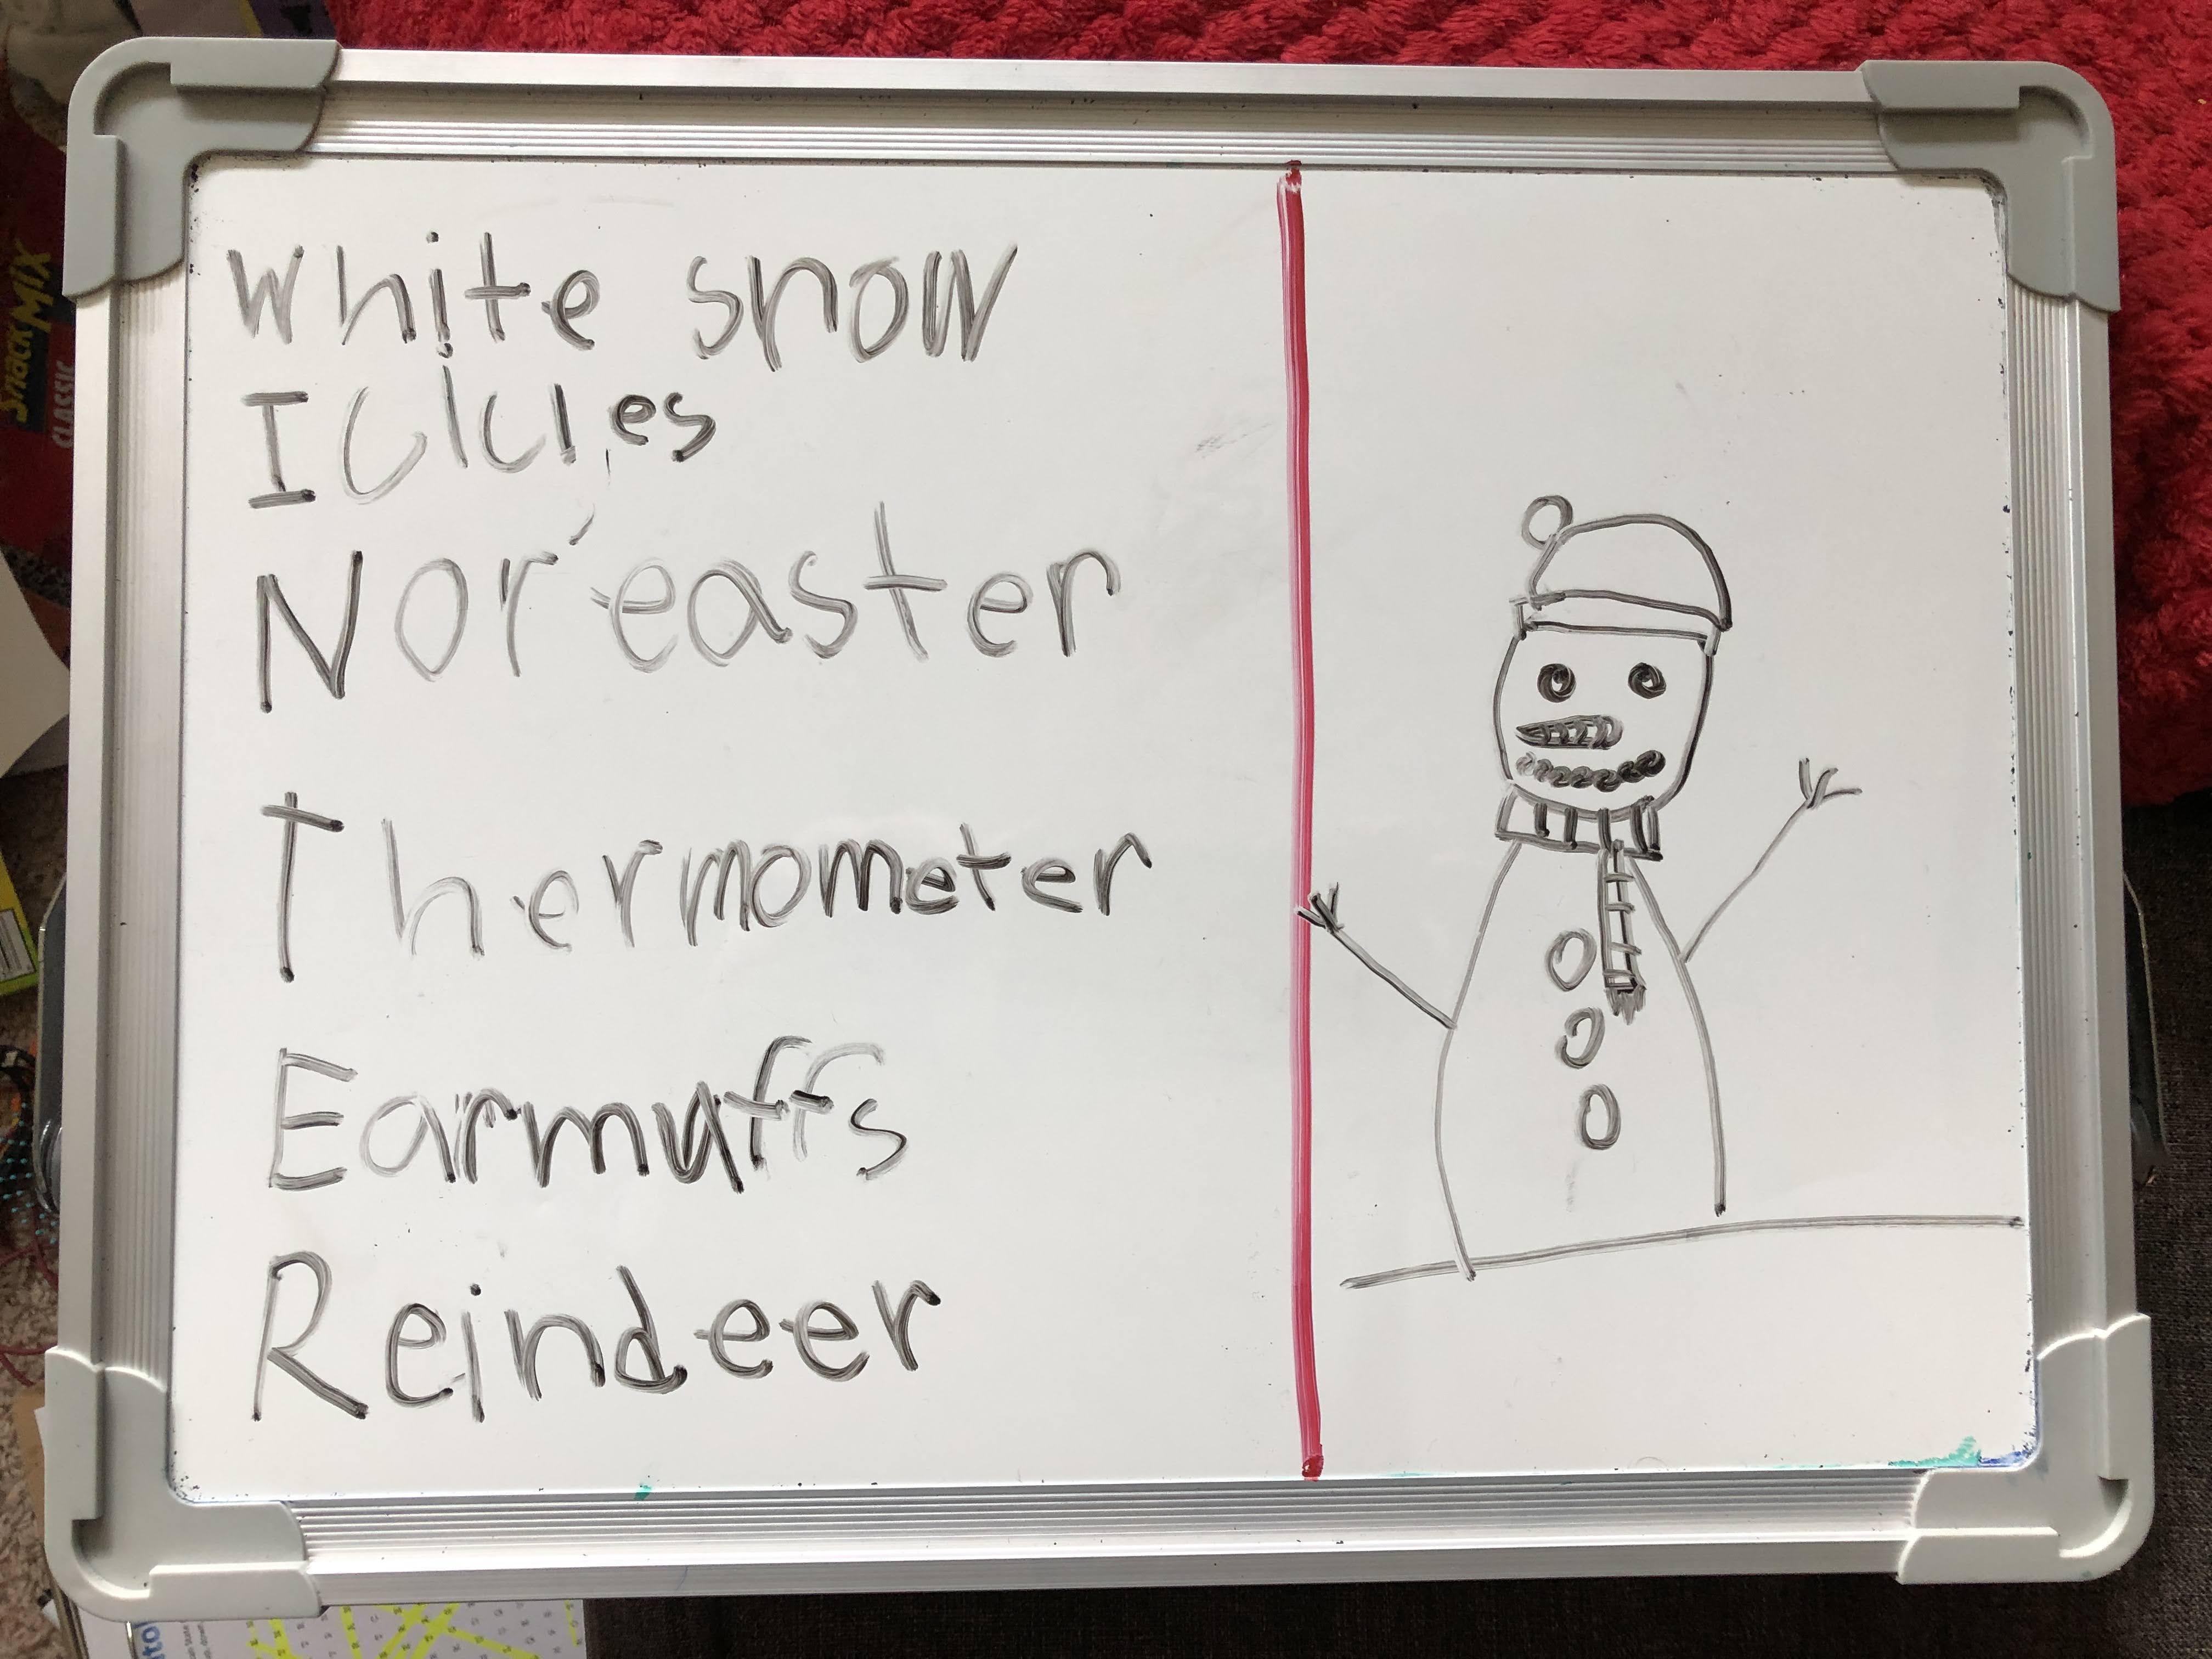 White snow
Icicles
Nor'easter
Thermometer
Earmuffs
Reindeer
Snack MIX
CLASSIC